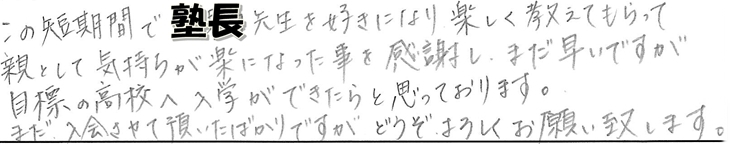 この短期間で塾長先生を好きになり楽しく教えてもらって
親として気持ちが楽になった事を感謝し、まだ早いですが
目標の高校へ入学ができたらと思っております。
まだ、入会させて頂いたばかりですが どうぞよろしくお願い致します。